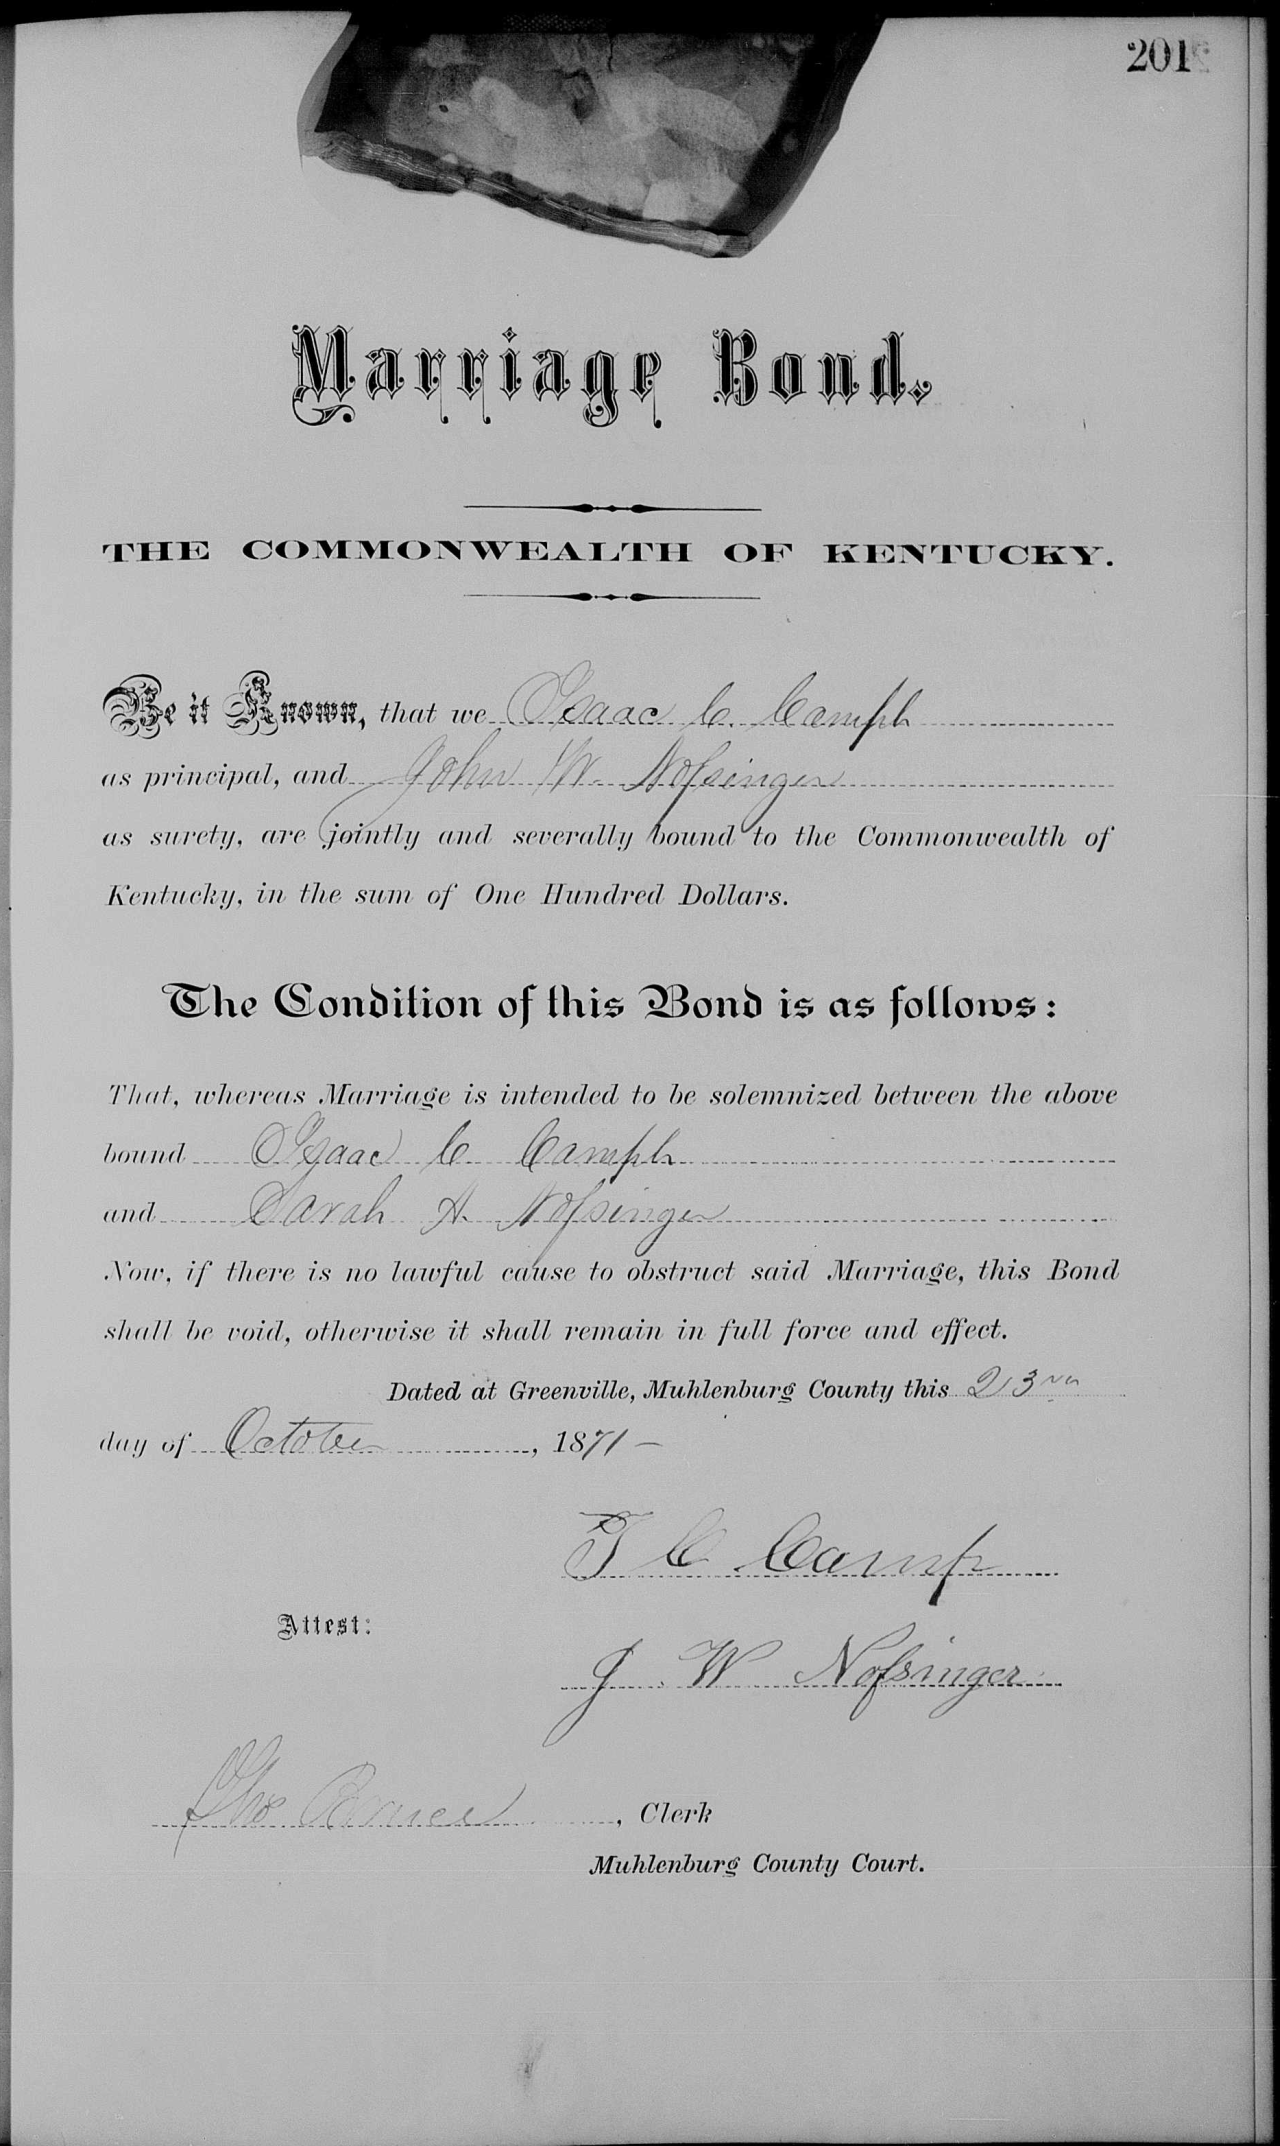 201
Marriage Bond.
THE COMMONWEALTH OF KENTUCKY.
Be it Known, that we Isaac C. Camph
as principal, and John W. Nofsinger
as surety, are jointly and severally bound to the Commonwealth of
Kentucky, in the sum of One Hundred Dollars.
The Condition of this Bond is as follows:
That, whereas Marriage is intended to be solemnized between the above
bound Isaac C Camph
and Sarah A. Nofsinger
Now, if there is no lawful cause to obstruct said Marriage, this Bond
shall be void, otherwise it shall remain in full force and effect.
Dated at Greenville, Muhlenburg County this 23rd
day of October, 1871 –
I C Camp
Attest:
J. W Nofsinger
Tho Bruce, Clerk
Muhlenburg County Court.